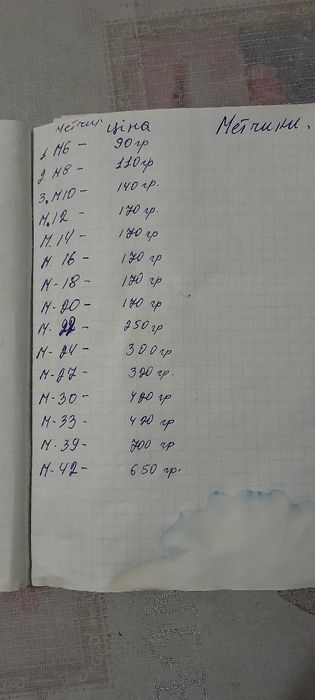 Метчик ціна Метчики.
1 М6 - 90гр
2 М8 - 110гр
3. М10 - 140гр.
М.12 - 170гр
М.14 - 170гр
М. 16 - 170гр
М-18 - 170гр
М-20 - 170гр
М-22 - 250гр
М-24 - 300гр
М-27 - 320гр.
М-30 - 420гр
М-33 - 420гр
М-39 - 700гр
М-42 - 650гр.